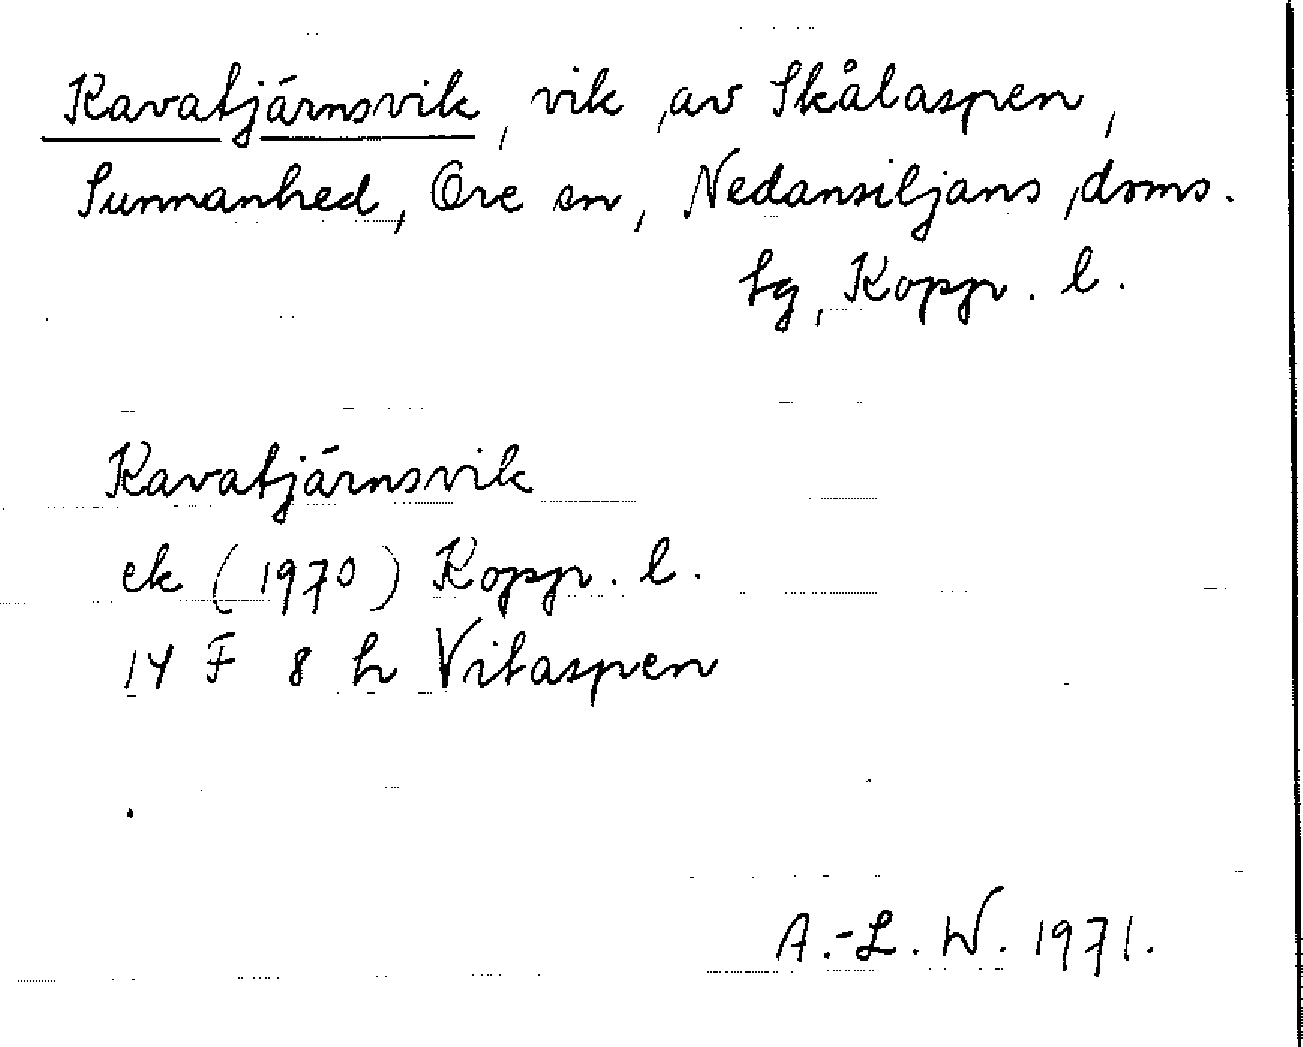 Kavatjärnsvik, vik av Skålaspen,
Sunnanhed, Ore sn, Nedansiljans doms.
tg, Kopp. l.
Kavatjärnsvik
ek (1970) Kopp. l.
14 F 8 h Vitaspen
A.-L. W. 1971.